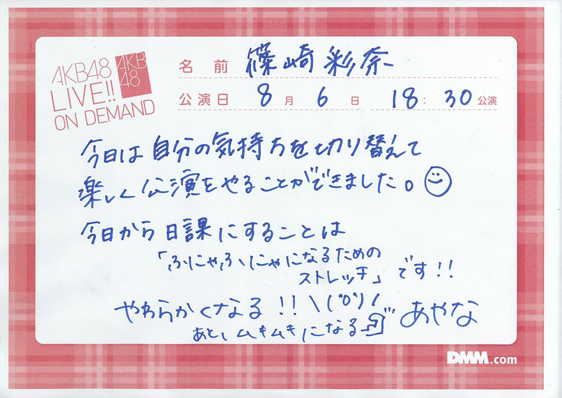 AKB48
LIVE!!
ON DEMAND
AKB
48
名前 篠崎彩奈
公演日 8月6日 18:30公演
今日は自分の気持ちを切り替えて
楽しく公演をやることができました。
今日から日課にすることは
「ふにゃふにゃになるための
ストレッチ」です!!
やわらかくなる!!\(°0°)/
あと、ムキムキになる
あやな
DMM.com